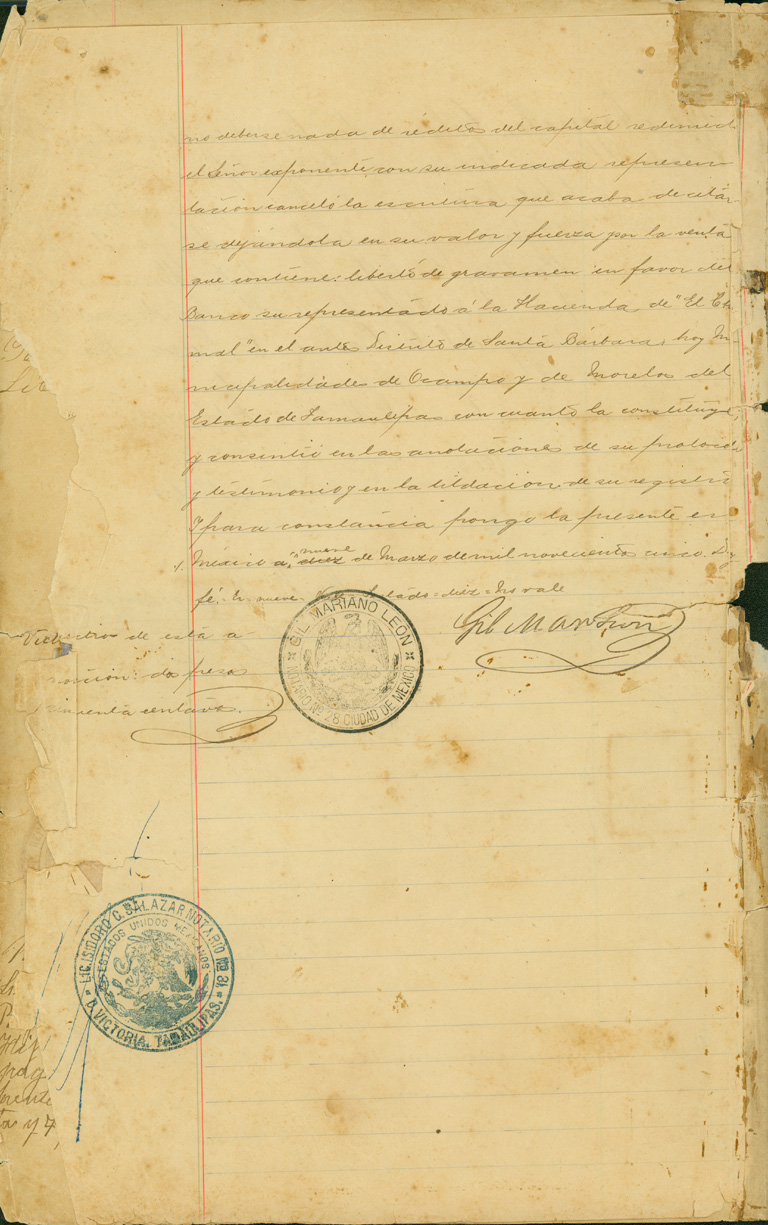 no deberse nada de réditos del capital redimido
el Señor exponente con su indicada represen-
tación canceló la escritura que acaba de citar-
se dejándola en su valor y fuerza por la venta
que contiene: libertó de gravamen en favor del
Banco su representado á la Hacienda de "El Ch
mal" en el antes Distrito de Santa Bárbara, hoy Mu-
nicipalidades de Ocampo y de Morelos del
Estado de Tamaulipas con cuanto la constituye,
y consintió en las anotaciones de su protocolo
y testimonio y en la tildación de su registro
Y para constancia pongo la presente en
nueve
México a diez de Marzo de mil novecientos cinco. Doy
fé. E. nueve. Vale. Testado=diez=No vale
Gil M. León
GIL MARIANO LEÓN
Nº 28 CIUDAD DE MEXICO
Derechos de esta a-
notación: dos pesos
cincuenta centavos.
LIC. ISIDORO C. SALAZAR NOTARIO Nº 31.
ESTADOS UNIDOS MEXICANOS
C. VICTORIA, TAMAULIPAS.
pag
ta y 7,